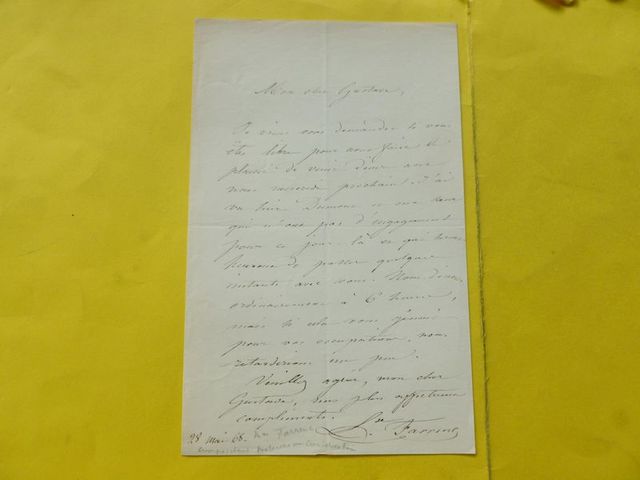 Mon cher Gustave,
Je viens vous demander si vous
êtes libre pour nous faire le
plaisir de venir dîner avec
nous mercredi prochain. J'ai
vu hier Dumont et sa sœur
qui n'ont pas d'engagement
pour ce jour là et qui seront
heureux de passer quelques
instants avec vous. Nous dînons
ordinairement à 6 heures,
mais si cela vous gênait
pour vos occupations, nous
retarderions un peu.
Veuillez agréer, mon cher
Gustave, mes plus affectueux
compliments.
Lse Farrenc
28 mai 68. Farrenc